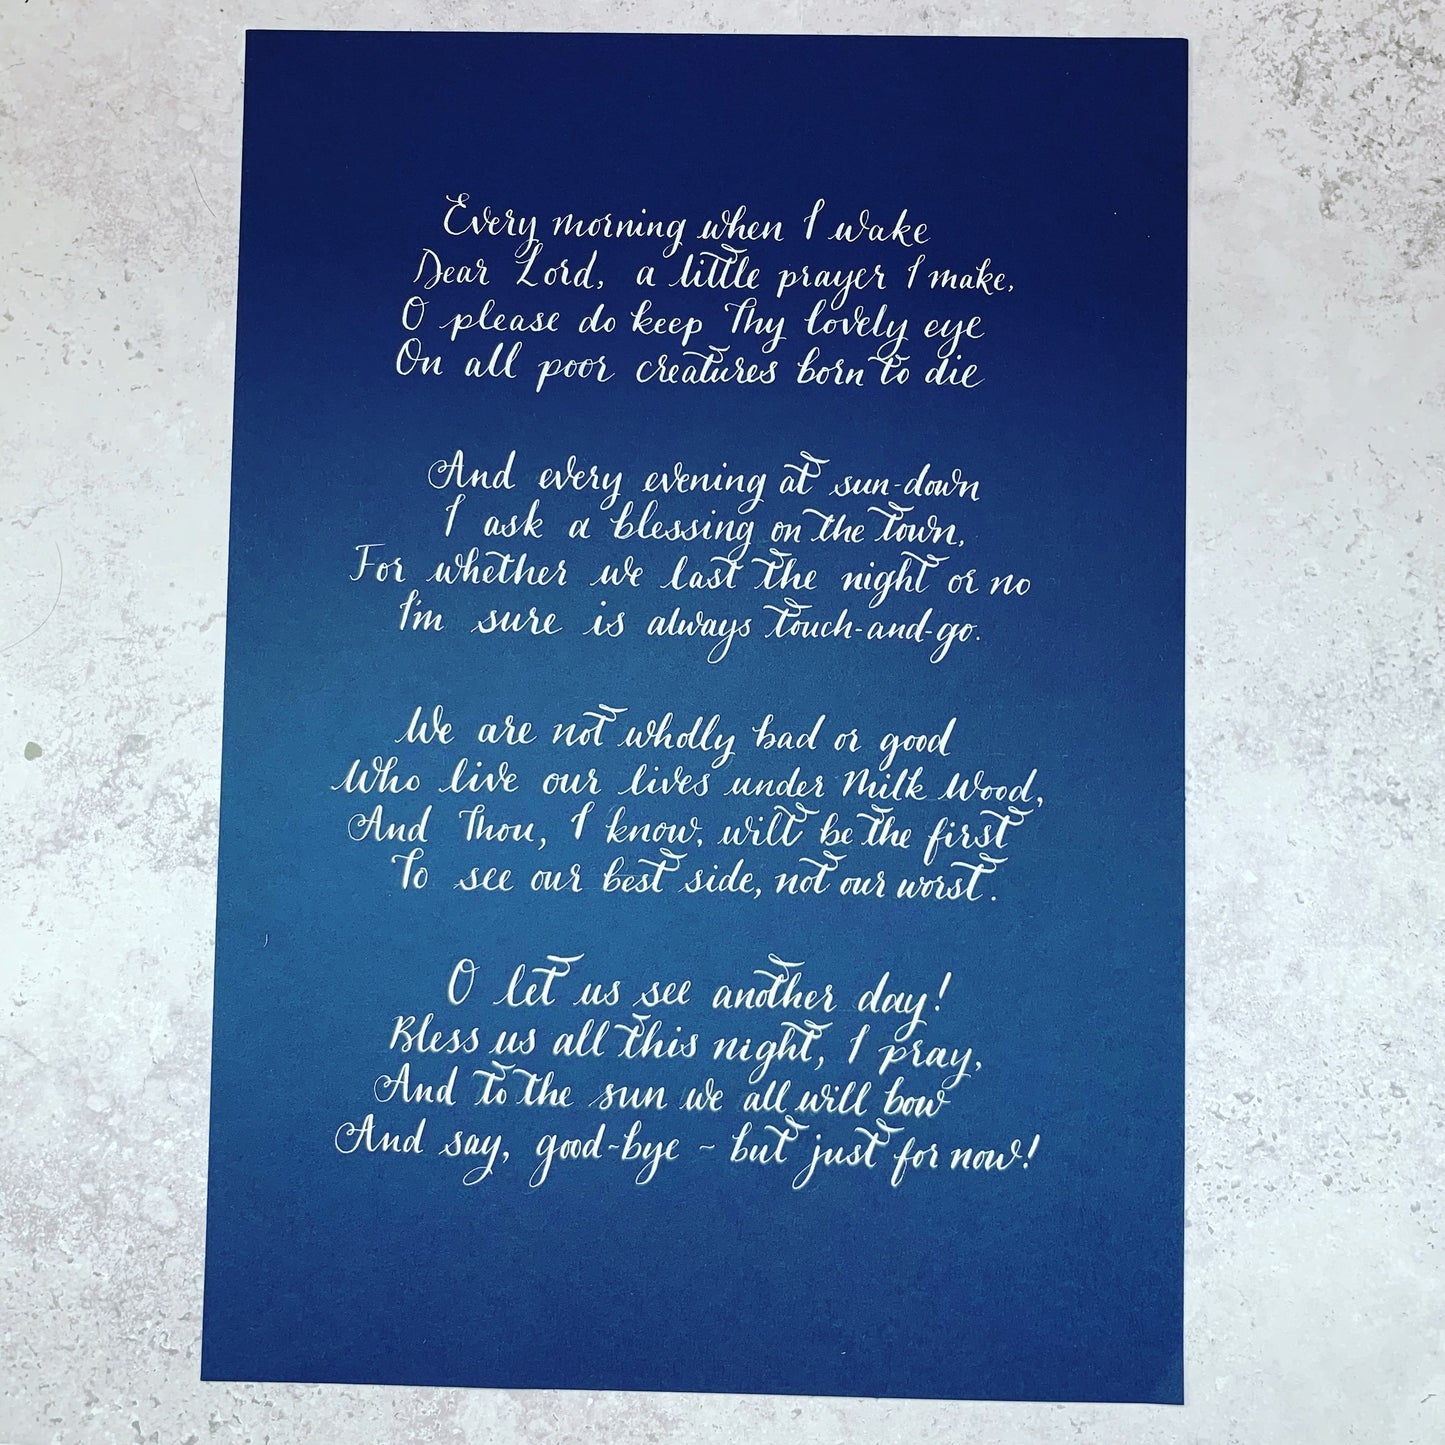 Every morning when I wake
Dear Lord, a little prayer I make,
O please do keep Thy lovely eye
On all poor creatures born to die
And every evening at sun-down
I ask a blessing on the town,
For whether we last the night or no
I'm sure is always touch-and-go.
We are not wholly bad or good
Who live our lives under Milk Wood,
And Thou, I know, wilt be the first
To see our best side, not our worst.
O let us see another day!
Bless us all this night, I pray,
And to the sun we all will bow
And say, good-bye ~ but just for now!